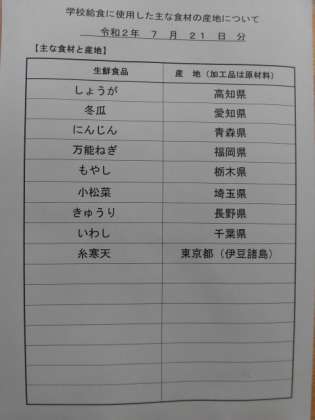 学校給食に使用した主な食材の産地について
令和2年 7 月 21 日 分
【主な食材と産地】
生鮮食品 産 地（加工品は原材料）
しょうが 高知県
冬瓜 愛知県
にんじん 青森県
万能ねぎ 福岡県
もやし 栃木県
小松菜 埼玉県
きゅうり 長野県
いわし 千葉県
糸寒天 東京都（伊豆諸島）